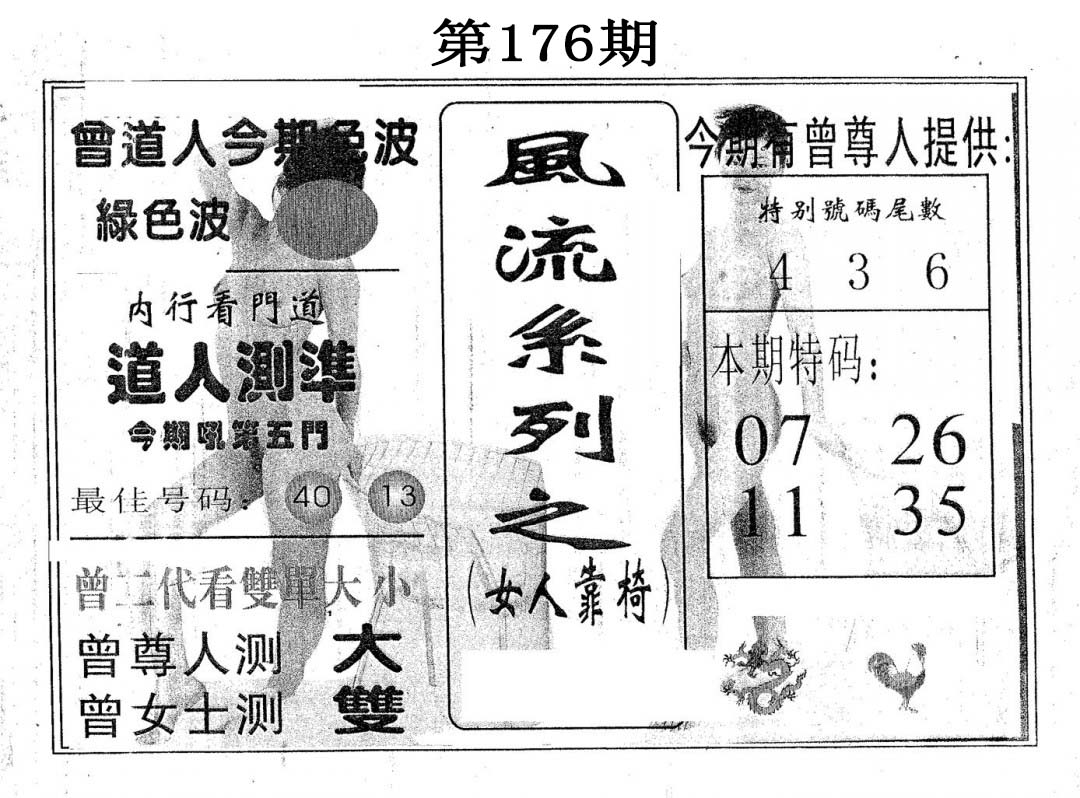 第176期
曾道人今期色波
綠色波
内行看門道
道人測準
今期吼第五門
最佳号码: 40 13
曾二代看雙單大小
曾尊人测 大
曾女士测 雙
風流系列之
(女人靠椅)
今期有曾尊人提供:
特别號碼尾數
4 3 6
本期特码:
07 26
11 35